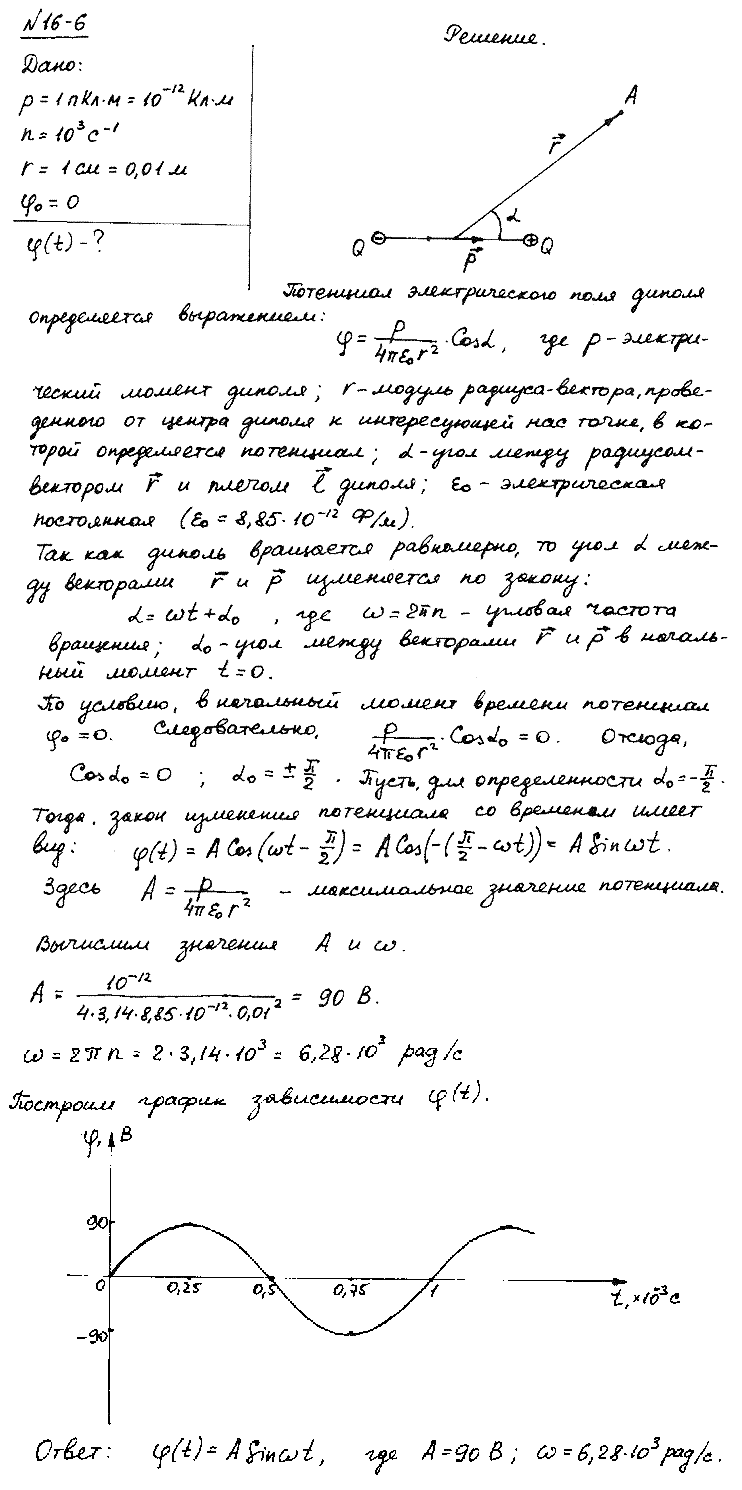 №16-6
Решение.
Дано:
p = 1 пКл·м = 10⁻¹² Кл·м
n = 10³ с⁻¹
r = 1 см = 0,01 м
φ₀ = 0
φ(t) - ?
A
r⃗
α
Q ⊖ ⊕ Q
p⃗
Потенциал электрического поля диполя
определяется выражением:
φ = p/(4πε₀r²) · Cosα, где p - электри-
ческий момент диполя; r - модуль радиуса-вектора, прове-
денного от центра диполя к интересующей нас точке, в ко-
торой определяется потенциал; α - угол между радиусом-
вектором r⃗ и плечом l⃗ диполя; ε₀ - электрическая
постоянная (ε₀ = 8,85·10⁻¹² Ф/м).
Так как диполь вращается равномерно, то угол α меж-
ду векторами r⃗ и p⃗ изменяется по закону:
α = ωt + α₀, где ω = 2πn - угловая частота
вращения; α₀ - угол между векторами r⃗ и p⃗ в началь-
ный момент t = 0.
По условию, в начальный момент времени потенциал
φ₀ = 0. Следовательно, p/(4πε₀r²) · Cosα₀ = 0. Отсюда,
Cosα₀ = 0 ; α₀ = ± π/2 . Пусть, для определенности α₀ = -π/2.
Тогда, закон изменения потенциала со временем имеет
вид: φ(t) = A Cos(ωt - π/2) = A Cos(-(π/2 - ωt)) = A Sinωt.
Здесь A = p/(4πε₀r²) - максимальное значение потенциала.
Вычислим значения A и ω.
A = 10⁻¹²/(4·3,14·8,85·10⁻¹²·0,01²) = 90 В.
ω = 2πn = 2·3,14·10³ = 6,28·10³ рад/с
Построим график зависимости φ(t).
φ, В
90
0 0,25 0,5 0,75 1
t, ×10⁻³ с
-90
Ответ: φ(t) = A Sinωt, где A = 90 В; ω = 6,28·10³ рад/с.